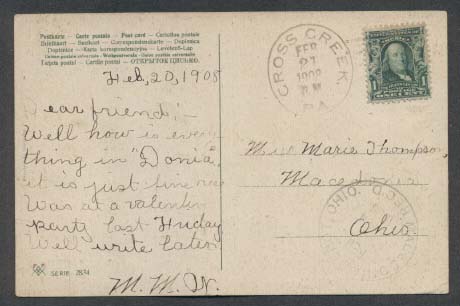 Postkarte — Carte postale — Post card — Cartolina postale
Briefkaart — Brefkort — Correspondenzkarte — Dopisnica
Dopisnice — Karta korespondencyjna — Levelező-Lap
Unione postale universale — Weltpostverein — Union postale universelle
Tarjeta postal — Cartão postal — ОТКРЫТОЕ ПИСЬМО
Feb, 20, 1908
Dear friend:-
Well how is every
thing in "Donia",
it is just fine
Was at a valentine
party last Friday
Well write later
M. M. W.
SERIE 2834
CROSS CREEK,
FEB
21
1908
PM
PA.
1
Miss Marie Thompson,
Macedonia
Ohio.
OHIO.